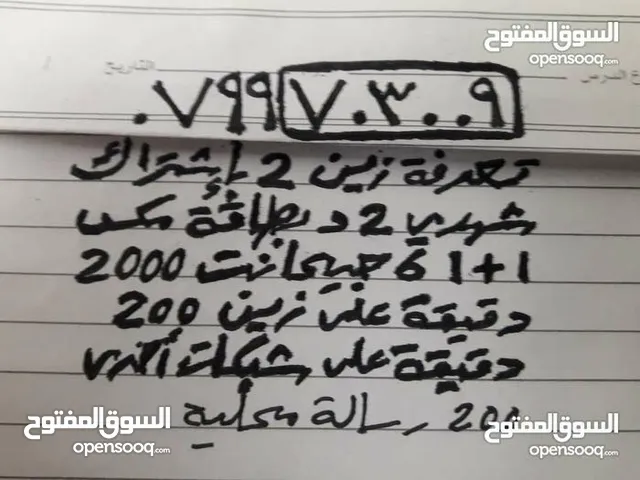 السوق المفتوح
opensooq.com
التاريخ
ع الدرس
٠٧٩٩٧٠٣٠٠٩
تعرفة زين 2 بإشتراك
شهري 2 د بطاقة مكس
1+1 6 جيجا نت 2000
دقيقة على زين 200
دقيقة على شبكات أخرى
200 رسالة محلية
السوق المفتوح
opensooq.com
السوق المفتوح
opensooq.com